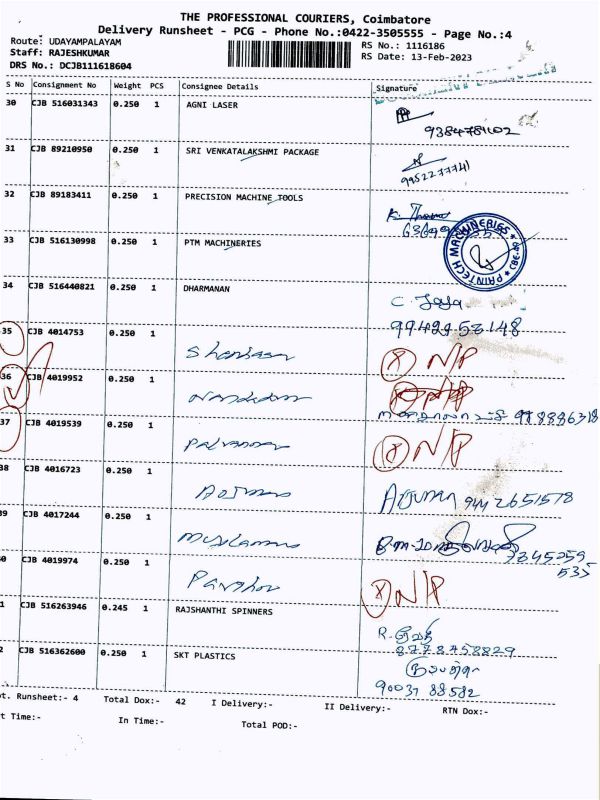 THE PROFESSIONAL COURIERS, Coimbatore
Delivery Runsheet - PCG - Phone No.:0422-3505555 - Page No.:4
Route: UDAYAMPALAYAM
RS No.: 1116186
Staff: RAJESHKUMAR
RS Date: 13-Feb-2023
DRS No.: DCJB111618604
S No Consignment No Weight PCS Consignee Details Signature
30 CJB 516031343 0.250 1 AGNI LASER
9384781102
31 CJB 89210950 0.250 1 SRI VENKATALAKSHMI PACKAGE
32 CJB 89183411 0.250 1 PRECISION MACHINE TOOLS
K. Thomas
33 CJB 516130998 0.250 1 PTM MACHINERIES
PAINTECH MACHINERIES CBE-49
34 CJB 516440821 0.250 1 DHARMANAN
C. Jaya
9942953148
35 CJB 4014753 0.250 1 (X) N/P
36 CJB 4019952 0.250 1
37 CJB 4019539 0.250 1 (X) N/P
38 CJB 4016723 0.250 1 Arjunan 9442651578
39 CJB 4017244 0.250 1
7345259
535
0 CJB 4019974 0.250 1 (X) N/P
1 CJB 516263946 0.245 1 RAJSHANTHI SPINNERS
R. ரேவதி
8778758829
2 CJB 516362600 0.250 1 SKT PLASTICS
90037 88582
ot. Runsheet:- 4 Total Dox:- 42 I Delivery:- II Delivery:- RTN Dox:-
t Time:- In Time:- Total POD:-